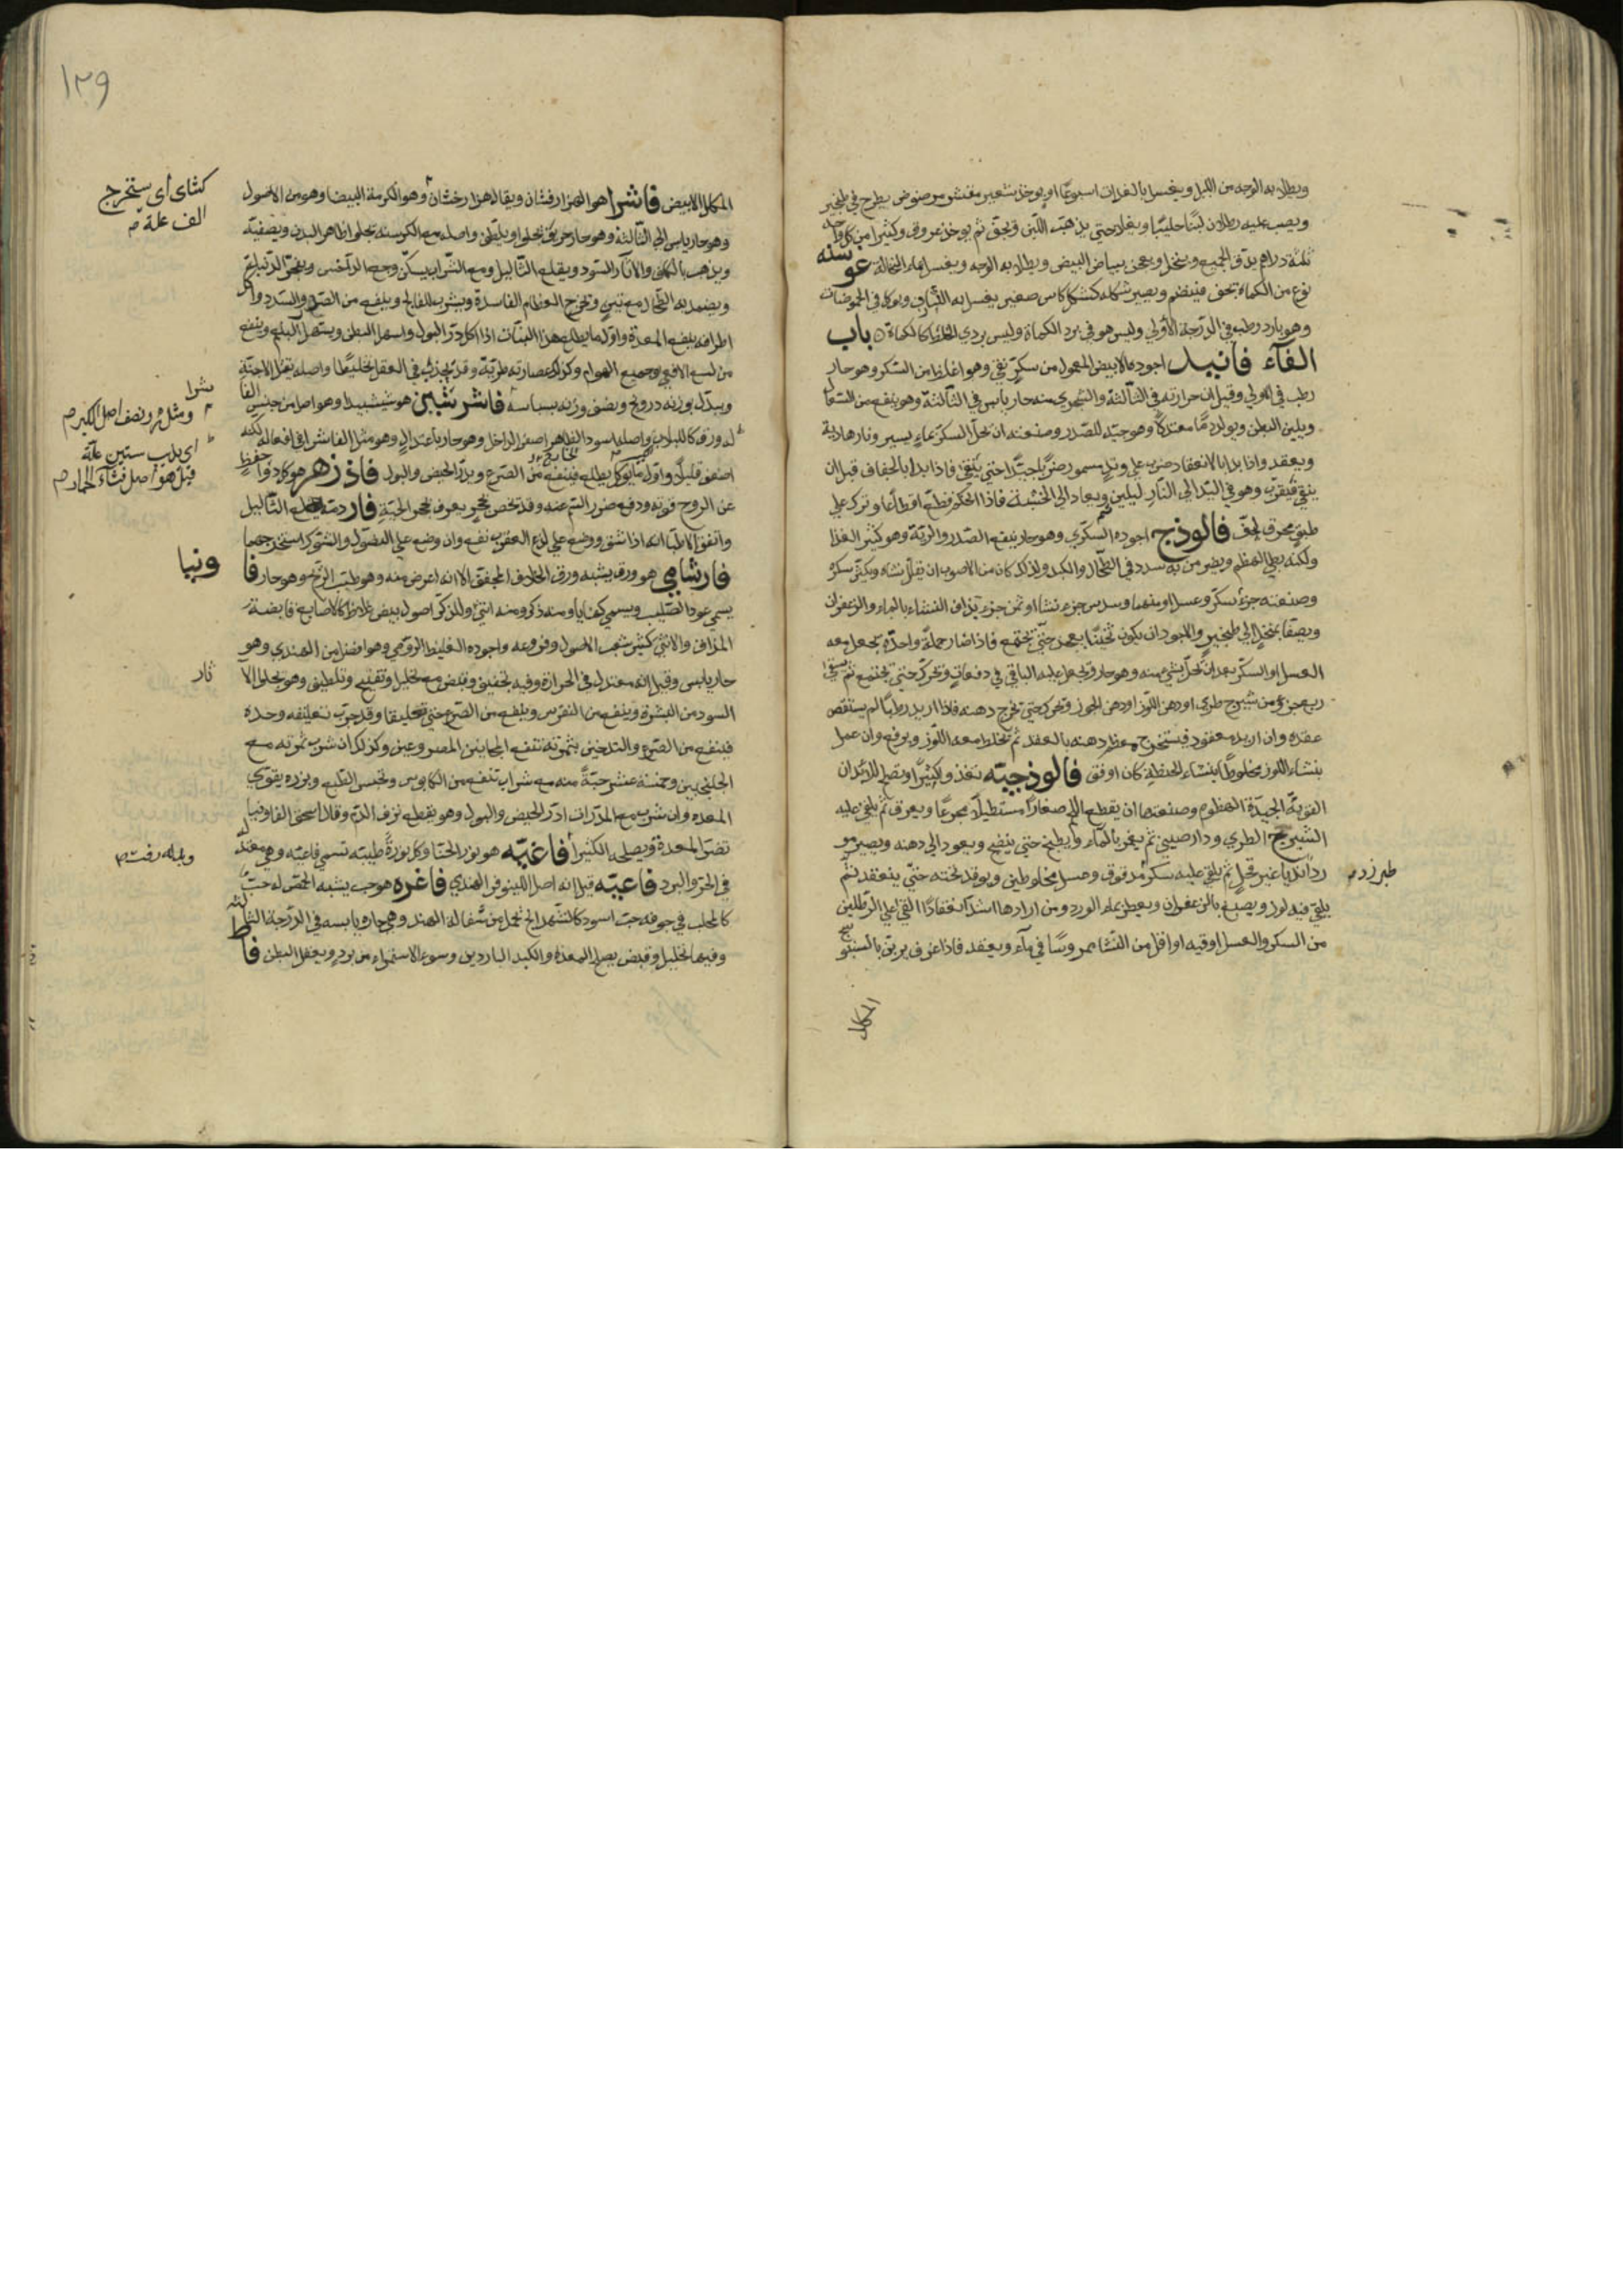 ويطلى به الوجه من الليل ويغسل بالغدوات اسبوعًا او يوخذ شعير مقشر مرضوض يطرح في طنجير
ويصب عليه رطلان لبنًا حليبًا ويغلا حتى يذهب اللبن ويجفف ثم يوخذ عروق وكثيرا من كل واحد
ثلثة دراهم يدق الجميع وينخل ويعجن ببياض البيض ويطلى به الوجه ويغسل بماء النخالة عوسنه
نوع من الكماة يجفف فينضم ويصير شكله كشكل كاس صغير يغسل به الثياب ويوكل في الحموضات
وهو بارد رطب في الدرجة الأولي وليس هو في برد الكماة وليس بردي الخلط كالكماة باب
الفآء فانيد اجوده الابيض المعمول من سكر نقي وهو اغلظ من السكر وهو حار
رطب في الاولي وقيل ان حرارته في الثالثة والشجري منه حار يابس في الثالثة وهو ينفع من السعال
ويلين البطن ويولد دمًا معتدلًا وهو جيد للصدر وصنعته ان يحل السكر بماء يسير ونار هادية
ويعقد واذا بدا بالانعقاد ضرب على وتد مسمور ضربًا جيدًا حتى ينقى فاذا بدا بالجفاف قبل ان
ينقى قيقرب وهو في اليد الي النار ليلين ويعاد الي الخشبة فاذا احكم قطع اقطاعًا وترك علي
طبق محرق يجف فالوذج اجوده السكري وهو حار ينفع الصدر والرية وهو كثير الغذا
ولكنه بطي الهضم ويضر من به سدد في الطحال والكبد ولذلك كان من الاصوب ان يقلل نشاه ويكثر سكره
وصنعته جزء سكر وعسل او منهما وسدس جزء نشا او ثمن جزء يذاف النشاء بالماء والزعفران
ويصفا بمنخل الي طنجير والاجود ان يكون ثخينًا يعمد حتى يجتمع فاذا صار جملة واحدة يجعل معه
العسل او السكر بعد ان يحل بشي منه وهو حار ويجعل عليه الباقي في دفعات ويحرك حتى يجتمع ثم يسقى
ربع جزء من شيرج طري او دهن اللوز او دهن الجوز ويحرك حتى يخرج دهنه فاذا اريد رطبًا لم يستقص
عقده وان اريد معقود فيستخرج معظم دهنه بالعقد ثم يخلط معه اللوز ويرفع وان عمل
بنشاء اللوز مخلوطًا بنشاء الحنطة كان اوفق فالوذجيه تغذوا كثيرًا وتصلح للابدان
القوية الجيدة الهضوم وصنعتها ان يقطع اللحم صغارًا مستطيلًا مجزعًا ويعرق ثم يلقي عليه
الشيرج الطري ودار صيني ثم يغمر بالماء ويطبخ حتى ينضج ويعود الي دهنه ويصير مو
ردًا نديًا غير قحل ثم يلقي عليه سكر مدقوق وعسل مخلوطين ويوقد تحته حتى ينعقد ثم
طبرزد
يلقى فيه لوز ويصبغ بالزعفران ويعطر بماء الورد ومن ارادها اشد انعقادًا القي علي الرطلين
من السكر والعسل اوقيه او اقل من النشا ممروسًا في مآء ويعقد فاذا عرف يربى بالسبتوسج
المكلل
١٣٩
المكلل الابيض فاشرا هو الهزارفشان ويقال هزارخشان وهو الكرمة البيضا وهو من الاصول
كثاى اى يستخرج
الف علة
وهو حار يابس الي الثالثة وهو حار حريف يجلو ويلطف واصله مع الكرسنه يجلو ظاهر البدن ويصفيه
ويذهب بالكلف والآثار السود ويقلع الثاليل ومع الشراب يسكن وجع الداحس ويفجر الدبيلة
ويضمد به الطحال مع تين ويخرج العظام الفاسدة ويشرب للفالج وينفع من الصرع والسدد واكل
اطرافه ينفع المعدة واول ما يطلع هذا النبات اذا اكل ادر البول واسهل البطن ويستهل البلغم وينفع
من لسع الافعي وجميع الهوام وكذلك عصارته طرية وقد يحدث في العقل تخليطًا واصله يقتل الاجنة
ويبدل بوزنه درونج ونصف وزنه بسباسه فاشرشبين هو ششبيدا وهو اصل من جنس الفا
شرا
ومثله ونصف اصل الكبر
له ورق كاللبلاب واصله اسود الظاهر اصفر الداخل وهو حار باعتدال وهو مثل الفاشرا في افعاله لكنه
اى يذيب ستين علة
اضعف قليلًا واول ما يوكل يطلع فينفع من الصرع ويدر الحيض والبول فاذزهر هو كل دوا حفظ
قيل هو اصل قثاء الحمار
عن الروح قوته ودفع ضرر السم عنه وقد يخص بحجر يعرف بحجر الحية فارد مته يقلع الثاليل
واتفق الاطبا انه اذا شق ووضع علي لدغ العقرب نفع وان وضع علي النصول والشوك استخرجهما
فارشامي هو ورقه يشبه ورق الخلاف المجفف الا انه اعرض منه وهو طيب الريح وهو حار فا
ونيا
يسمى عود الصليب ويسمى كهنايا ومنه ذكر ومنه انثى وللذكر اصول بيض غلاظ كالاصابع قابضة
المذاق والانثى كثير شعب الاصول وفروعه واجوده الغليظ الرومي وهو افضل من الهندي وهو
حار يابس وقيل انه معتدل في الحرارة وفيه تجفيف وقبض مع تحليل وتفتيح وتلطيف وهو يجلو الا
ثار
السود من البشرة وينفع من النقرس وينفع من الصرع حتى تعليقا وقد جرب تعليقه وحده
فينفع من الصرع والتدخين بثمرته ينفع المجانين المصروعين وكذلك ان شرب ثمرته مع
الجلنجبين وخمسة عشر حبة منه مع شراب تنفع من الكابوس وتحبس الطبع وبزره يقوي
المعدة وان شرب مع المدرات ادر الحيض والبول وهو يقطع نزف الدم وقال اسحق الفاونيا
تضر المعدة ويصلحه الكثيرا فاغيه هو نور الحنا وكل نورة طيبته تسمى فاغيه وهي معتدلة
وبدله رفت
في الحر والبرد فاعيه قيل انه اصل اللينوفر الهندي فاغره هو حب يشبه الحمص له حب
كالمحلب في جوفه حب اسود كالشهدانج يحمل من شفالة الهند وهي حارة يابسه في الدرجة الثالثه
وفيها تحليل وقبض يصلح المعدة والكبد الباردين وسوء الاستمراء من برد ويعقل البطن فاط